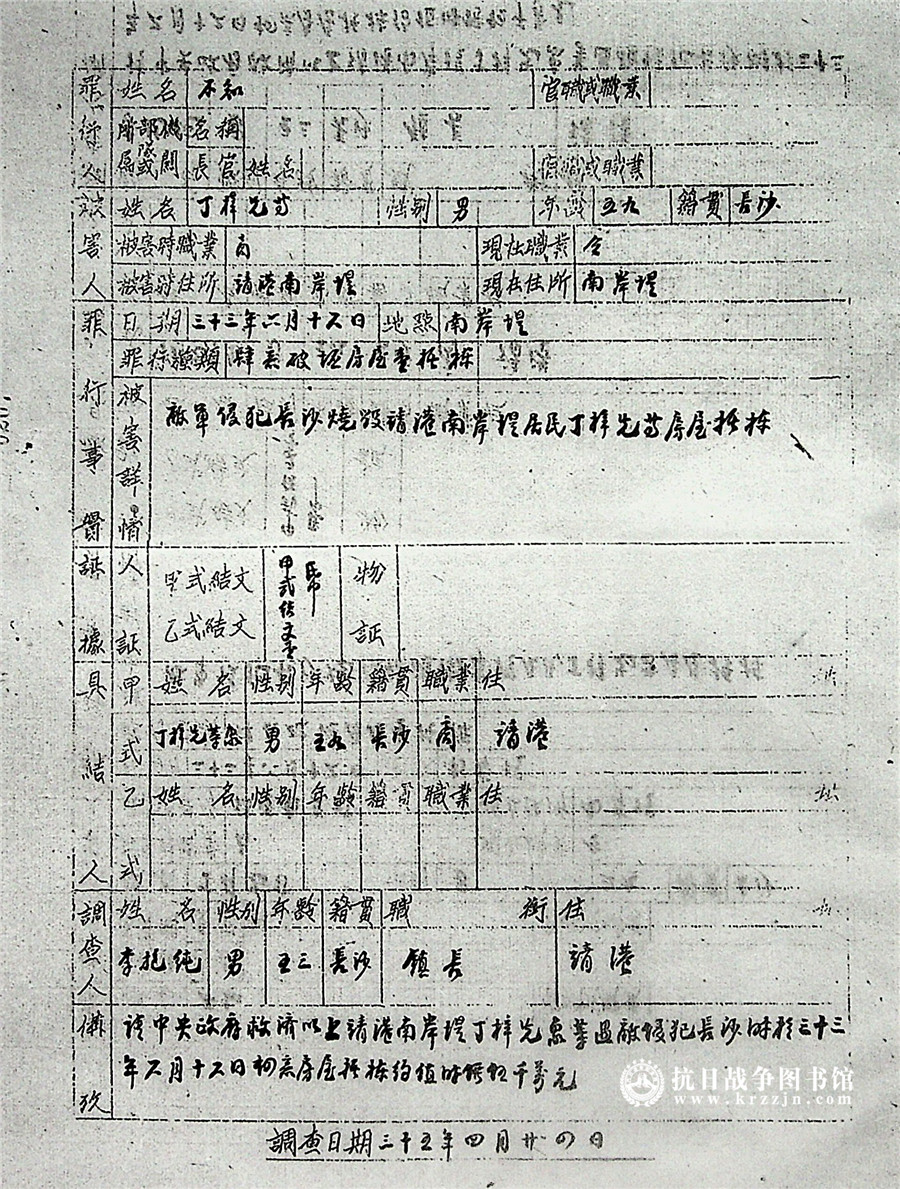 罪行人 姓名 不知 官職或職業
所屬部隊或機關 名稱
長官 姓名 官職或職業
被害人 姓名 丁梓先等 性别 男 年齡 五九 籍貫 長沙
被害時職業 商 現在職業 仝
被害時住所 請港南岸堤 現在住所 南岸堤
罪行事實 日期 三十三年六月十六日 地點 南岸堤
罪行種類 肆意破壞房屋壹拾棟
被害詳情 敵軍侵犯長沙燒毀請港南岸堤居民丁梓先等房屋拾棟
証據 人証 甲式結文 乙式結文 甲式結文壹 物証
具結人 甲式 姓名 性别 年齡 籍貫 職業 住址
丁梓先等 男 五九 長沙 商 請港
乙式 姓名 性别 年齡 籍貫 職業 住址
調查人 姓名 性别 年齡 籍貫 職銜 住
李 純 男 五三 長沙 鎮長 請港
備攷 請中央政府救濟以上請港南岸堤丁梓先 等遇敵侵犯長沙時於三十三
年六月十六日 房屋拾棟約值時 千萬元
調查日期三十五年四月廿四日
抗日战争图书馆
www.krzzjn.com